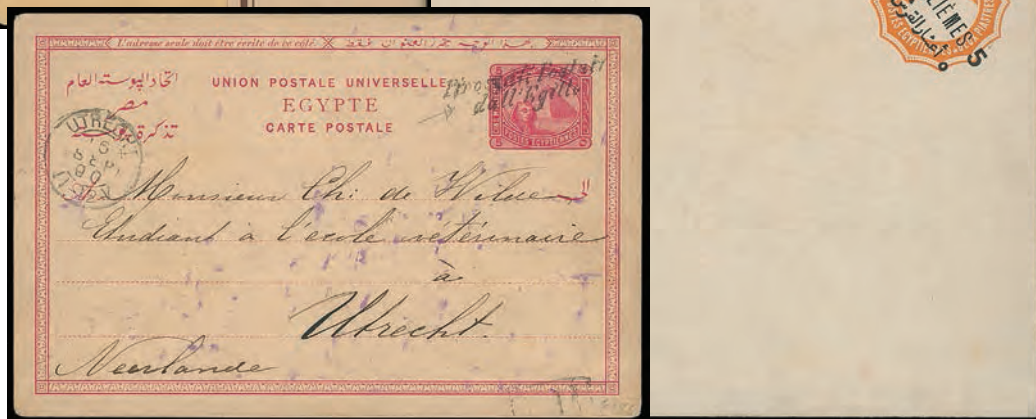 L'adresse seule doit être écrite de ce côté.
اتحاد البوستة العام
مصر
تذكرة بوسته
UNION POSTALE UNIVERSELLE
EGYPTE
CARTE POSTALE
Piroscafi Postali
dall'Egitto
5 5
UTRECHT
Monsieur Ch: de Wilde
Etudiant à l'école vétérinaire
à
Utrecht.
Neerlande
LIÈMES 5
POSTES EGYPTIENNES
PIASTRES